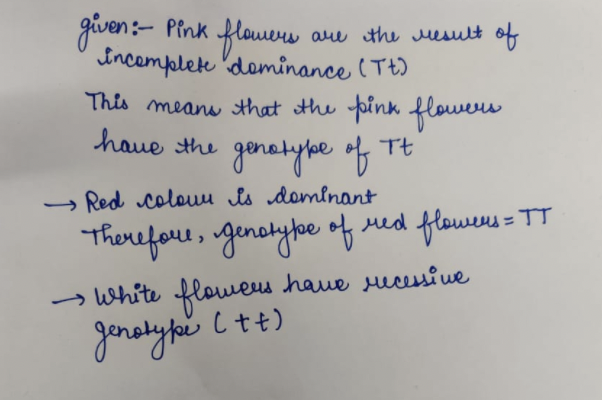 given:- Pink flowers are the result of
incomplete dominance (Tt)
This means that the pink flowers
have the genotype of Tt
→ Red colour is dominant
Therefore, genotype of red flowers = TT
→ White flowers have recessive
genotype (tt)